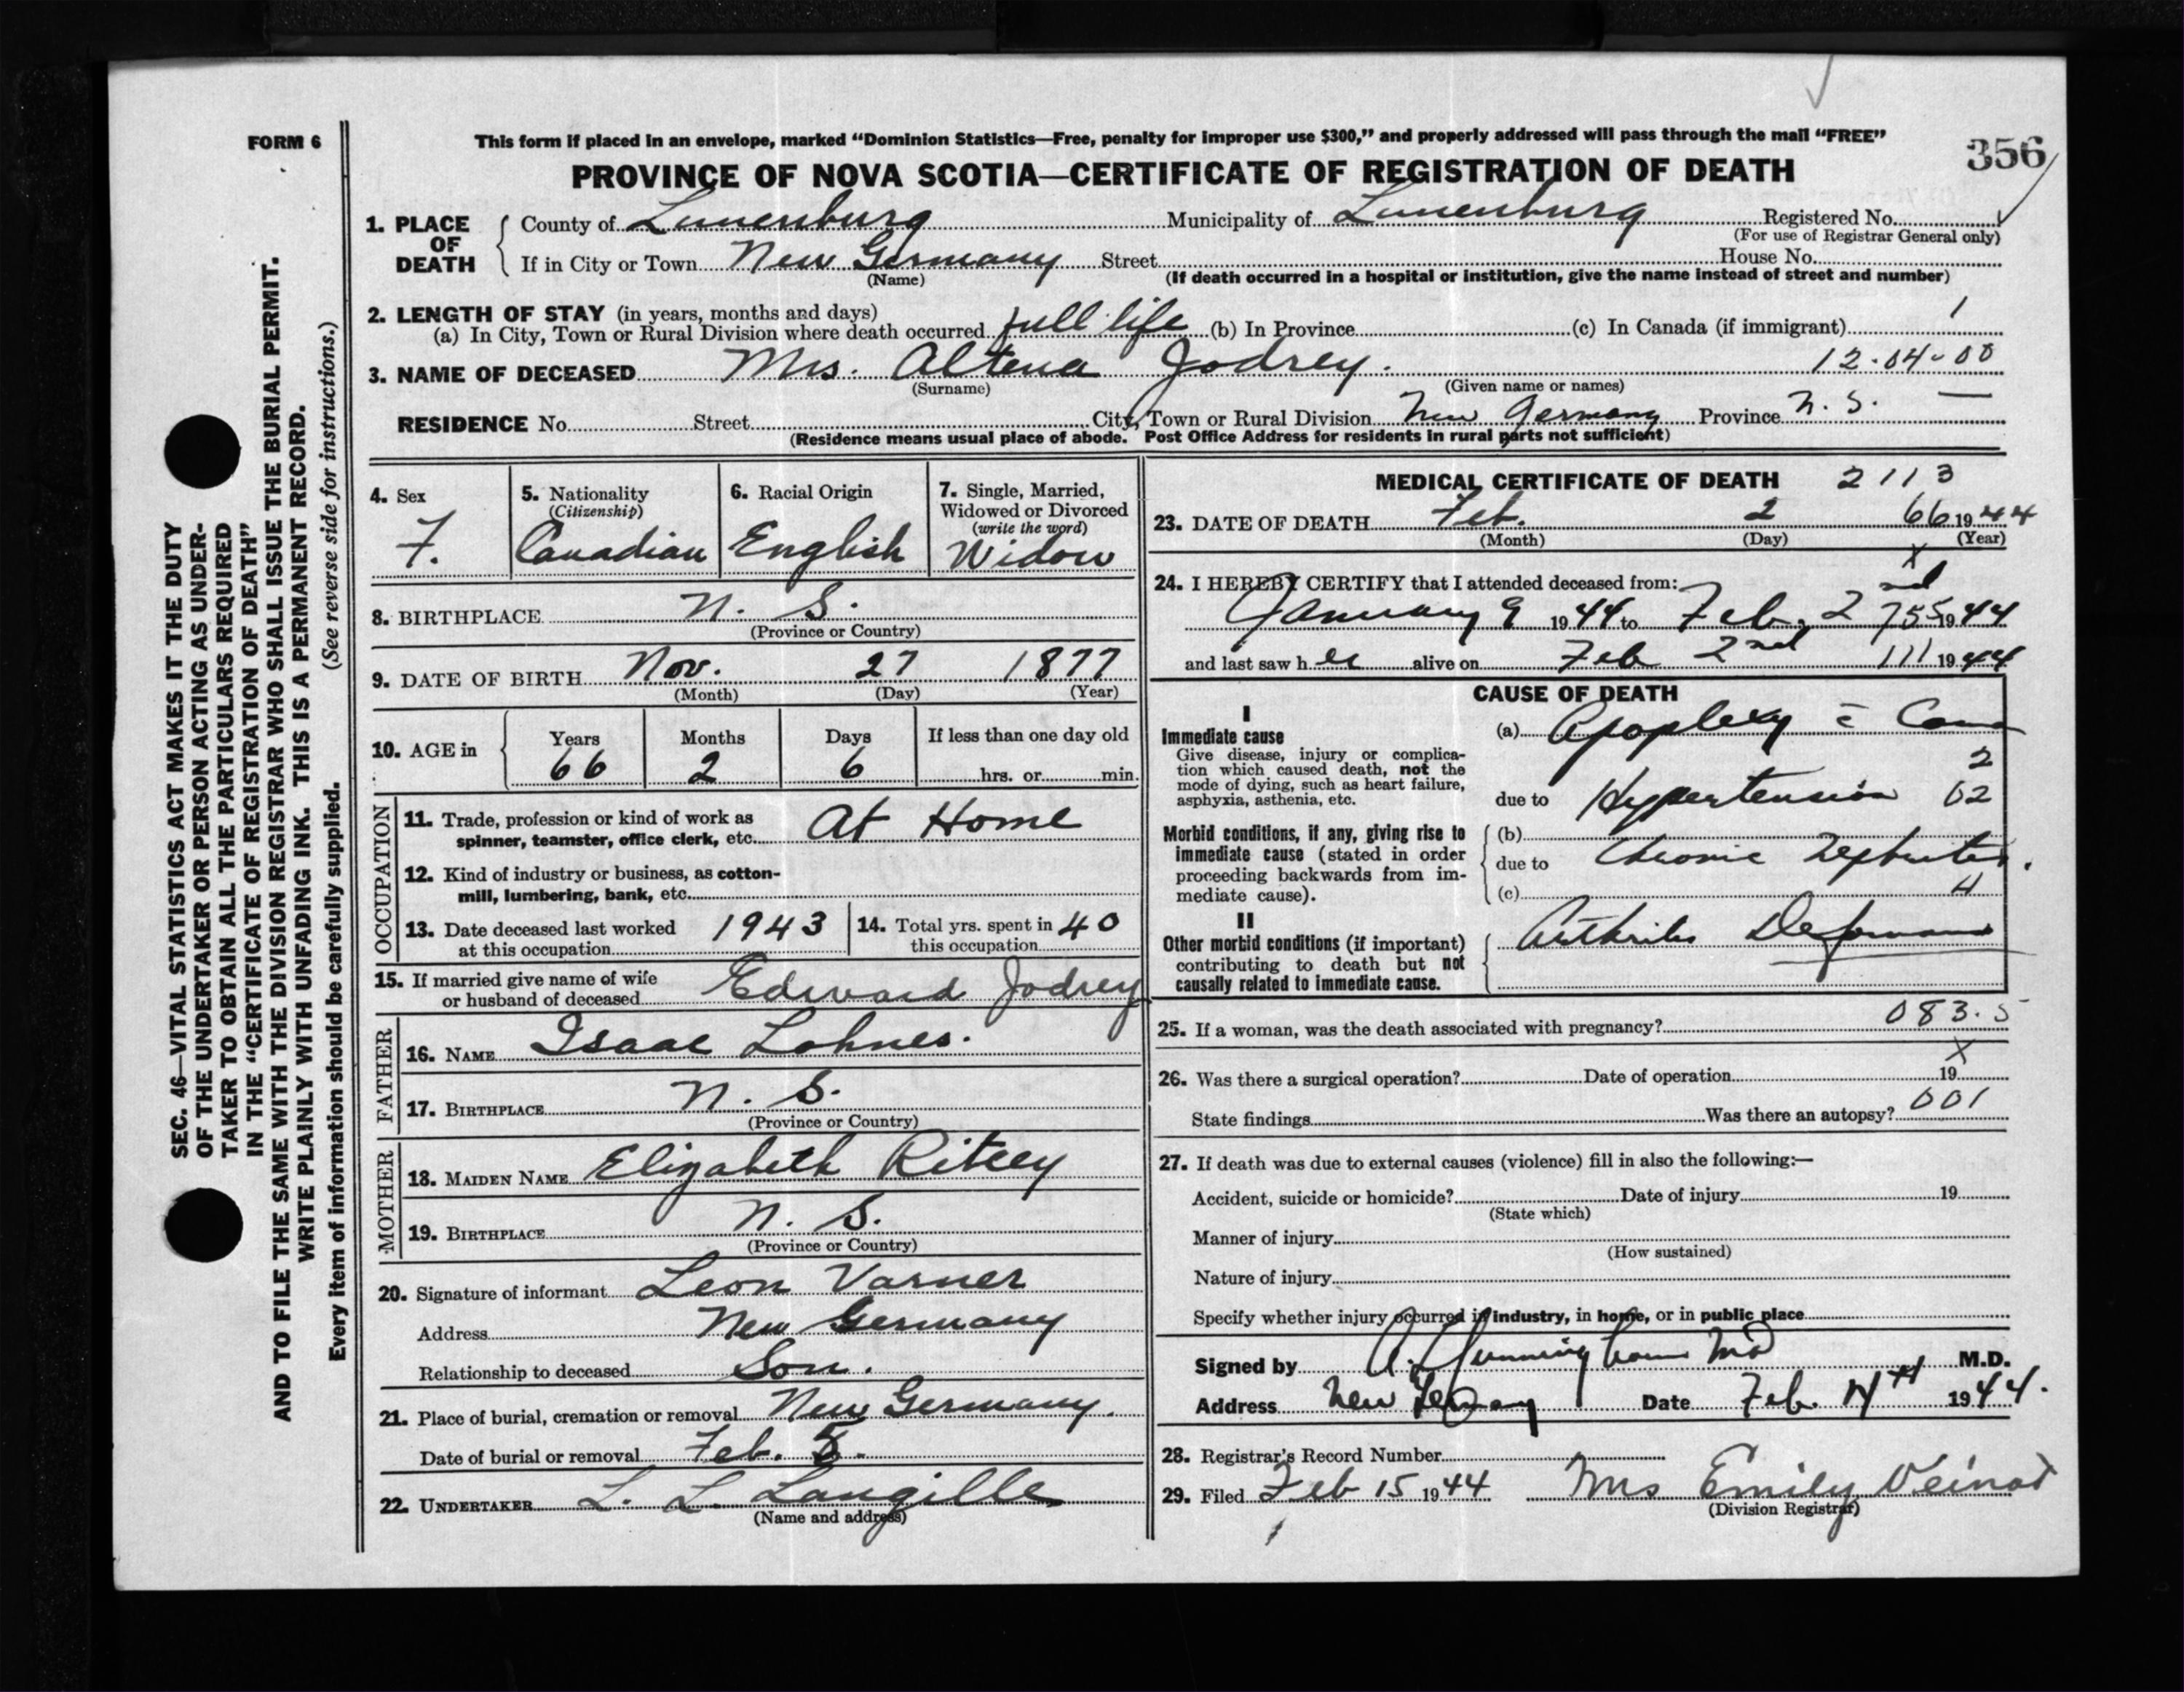 FORM 6
This form if placed in an envelope, marked “Dominion Statistics—Free, penalty for improper use $300,” and properly addressed will pass through the mail “FREE”
356
PROVINCE OF NOVA SCOTIA—CERTIFICATE OF REGISTRATION OF DEATH
1. PLACE OF DEATH
County of Lunenburg Municipality of Lunenburg Registered No.
(For use of Registrar General only)
If in City or Town New Germany Street House No.
(Name) (If death occurred in a hospital or institution, give the name instead of street and number)
2. LENGTH OF STAY (in years, months and days)
(a) In City, Town or Rural Division where death occurred full life (b) In Province (c) In Canada (if immigrant) 1
3. NAME OF DECEASED Mrs. Altena Jodrey. 12-04-00
(Surname) (Given name or names)
RESIDENCE No. Street City, Town or Rural Division New Germany Province N. S. —
(Residence means usual place of abode. Post Office Address for residents in rural parts not sufficient)
4. Sex
F.
5. Nationality
(Citizenship)
Canadian
6. Racial Origin
English
7. Single, Married,
Widowed or Divorced
(write the word)
Widow
8. BIRTHPLACE N. S.
(Province or Country)
9. DATE OF BIRTH Nov. 27 1877
(Month) (Day) (Year)
10. AGE in
Years Months Days If less than one day old
66 2 6 hrs. or min.
OCCUPATION
11. Trade, profession or kind of work as
spinner, teamster, office clerk, etc. At Home
12. Kind of industry or business, as cotton-
mill, lumbering, bank, etc.
13. Date deceased last worked
at this occupation 1943
14. Total yrs. spent in
this occupation 40
15. If married give name of wife
or husband of deceased Edward Jodrey
FATHER
16. NAME Isaac Lohnes.
17. BIRTHPLACE N. S.
(Province or Country)
MOTHER
18. MAIDEN NAME Elizabeth Ritcey
19. BIRTHPLACE N. S.
(Province or Country)
20. Signature of informant Leon Varner
Address New Germany
Relationship to deceased Son.
21. Place of burial, cremation or removal New Germany.
Date of burial or removal Feb. 5.
22. UNDERTAKER L. L. Langille
(Name and address)
MEDICAL CERTIFICATE OF DEATH 2113
23. DATE OF DEATH Feb. 2 66 1944
(Month) (Day) (Year)
X
24. I HEREBY CERTIFY that I attended deceased from:
January 9 1944 to Feb. 2nd 755 1944
and last saw her alive on Feb 2nd 111 1944
CAUSE OF DEATH
I
Immediate cause
Give disease, injury or complica-
tion which caused death, not the
mode of dying, such as heart failure,
asphyxia, asthenia, etc.
(a) Apoplexy c̄ Coma
2
due to Hypertension 02
Morbid conditions, if any, giving rise to
immediate cause (stated in order
proceeding backwards from im-
mediate cause).
(b)
due to Chronic Nephritis.
(c) 4
II
Other morbid conditions (if important)
contributing to death but not
causally related to immediate cause.
Arthritis Deformans
25. If a woman, was the death associated with pregnancy? 083.5
X
26. Was there a surgical operation? Date of operation 19
State findings Was there an autopsy? 001
27. If death was due to external causes (violence) fill in also the following:—
Accident, suicide or homicide? Date of injury 19
(State which)
Manner of injury
(How sustained)
Nature of injury
Specify whether injury occurred in industry, in home, or in public place
Signed by MD M.D.
Address New Germany Date Feb. 14th 1944.
28. Registrar's Record Number
29. Filed Feb 15 1944 Mrs Emily Veinot
(Division Registrar)
SEC. 46—VITAL STATISTICS ACT MAKES IT THE DUTY
OF THE UNDERTAKER OR PERSON ACTING AS UNDER-
TAKER TO OBTAIN ALL THE PARTICULARS REQUIRED
IN THE “CERTIFICATE OF REGISTRATION OF DEATH”
AND TO FILE THE SAME WITH THE DIVISION REGISTRAR WHO SHALL ISSUE THE BURIAL PERMIT.
WRITE PLAINLY WITH UNFADING INK. THIS IS A PERMANENT RECORD.
Every item of information should be carefully supplied. (See reverse side for instructions.)